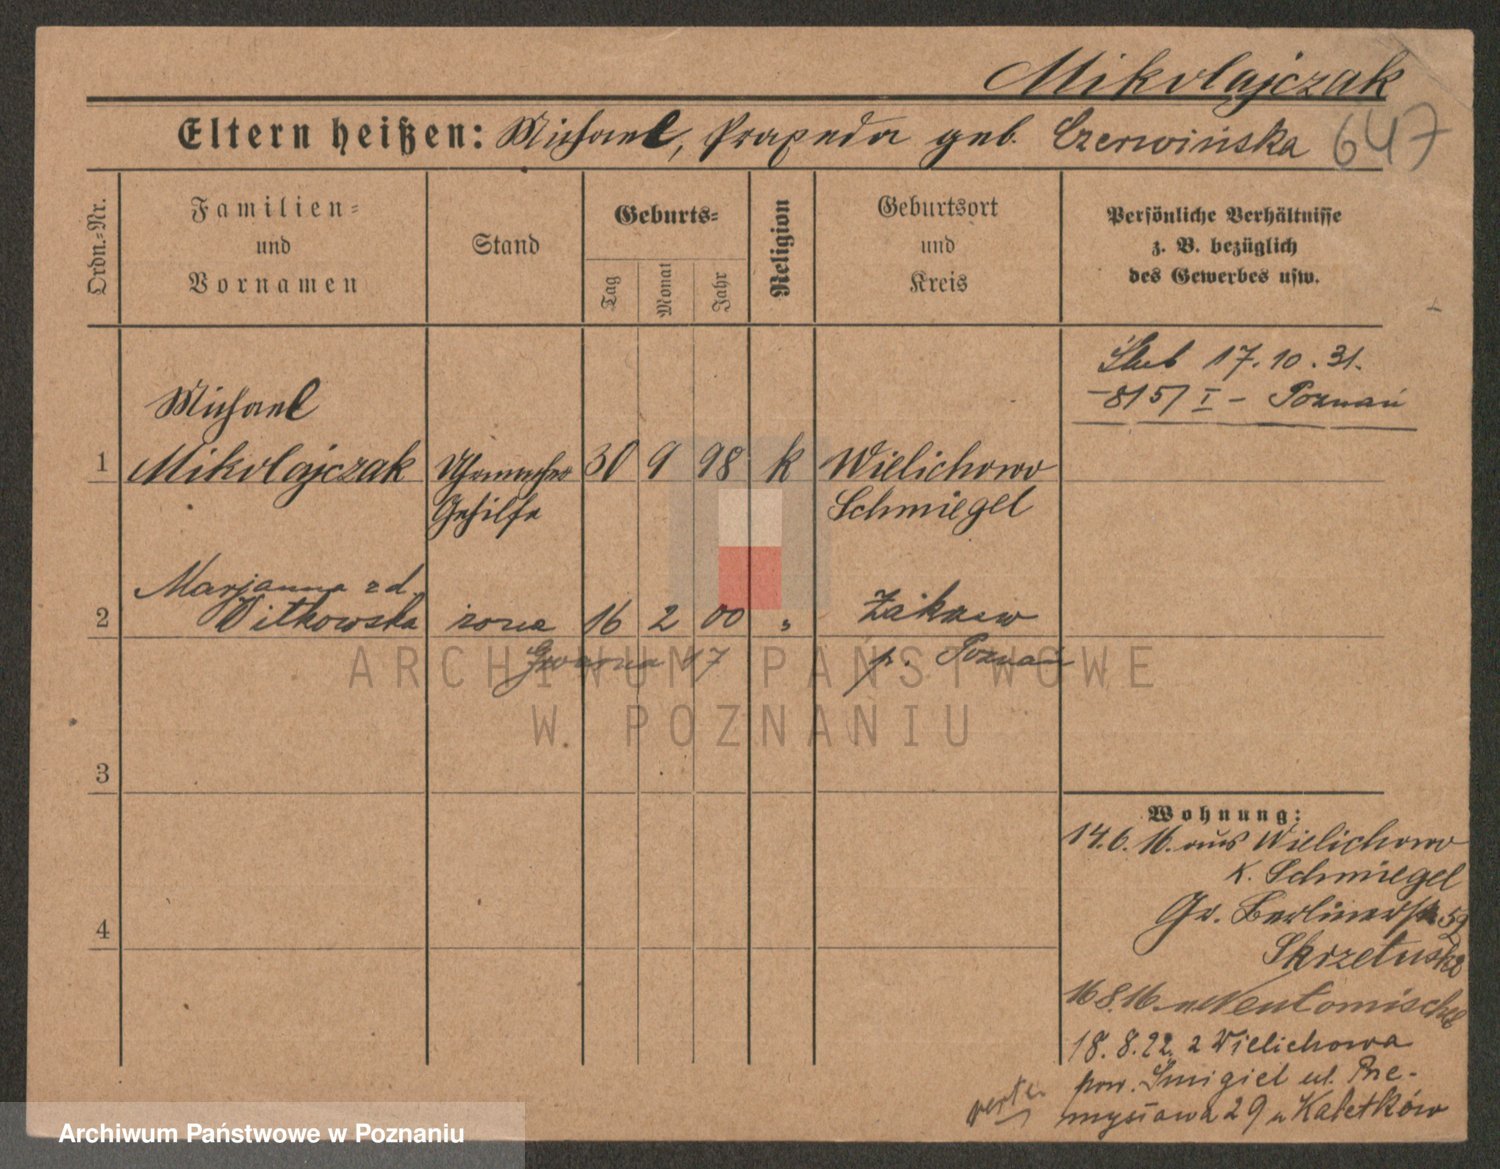 Mikołajczak
Eltern heißen: Michael, Praxeda geb. Czerwińska 647
Ordn.-Nr.
Familien-
und
Vornamen
Stand
Geburts-
Tag
Monat
Jahr
Religion
Geburtsort
und
Kreis
Persönliche Verhältnisse
z. B. bezüglich
des Gewerbes usw.
Ślub 17.10.31.
-815/I- Poznań
Michael
1 Mikołajczak Uhrmacher 30 9 98 k Wielichowo
Gehilfe Schmiegel
Marjanna zd.
2 Witkowska żona 16 2 00 "
Gwarna 17 p. Poznań
3
4
Wohnung:
14.6.16. aus Wielichowo
K. Schmiegel
Gr. Berlinerstr. 59
Skrzetuski
16.8.16. n. Neutomischel
18.8.22 z Wielichowa
pow. Śmigiel ul. Prze-
mysława 29 u Kaletków
verte
ARCHIWUM PAŃSTWOWE
W POZNANIU
Archiwum Państwowe w Poznaniu